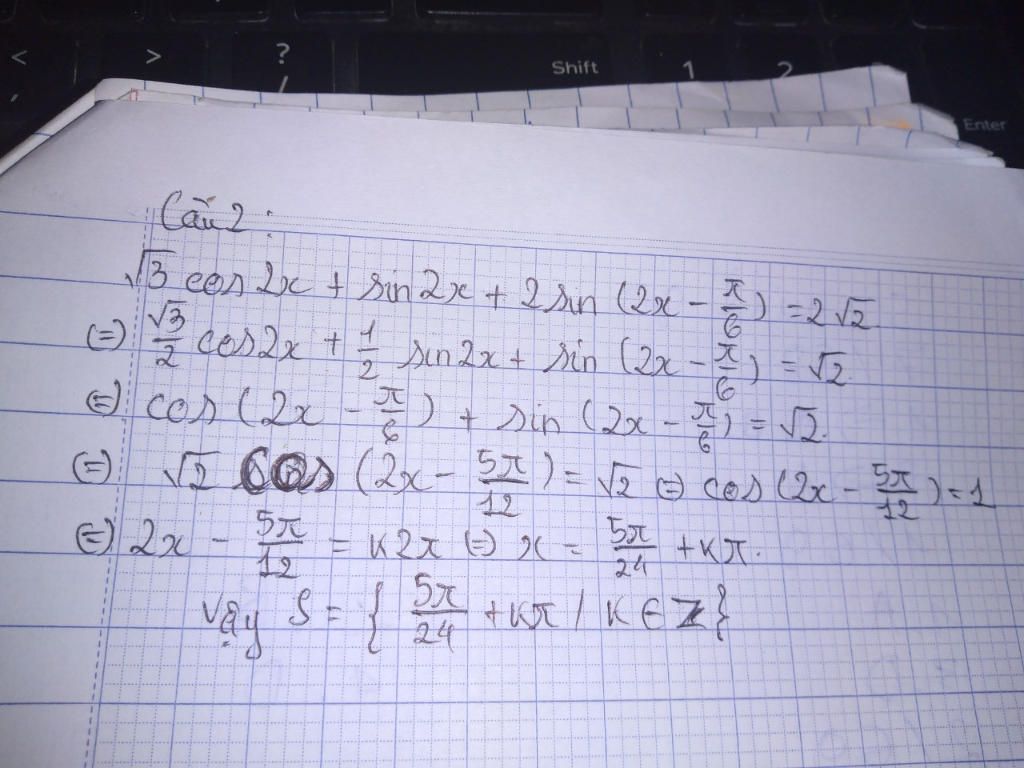 < > ? Shift 1 2
, / Enter
Câu 2 :
√3 cos 2x + sin 2x + 2 sin (2x - π/6) = 2√2
(=) √3/2 cos 2x + 1/2 sin 2x + sin (2x - π/6) = √2
(=) cos (2x - π/6) + sin (2x - π/6) = √2.
(=) √2 cos (2x - 5π/12) = √2 (=) cos (2x - 5π/12) = 1
(=) 2x - 5π/12 = k2π (=) x = 5π/24 + kπ.
Vậy S = { 5π/24 + kπ / k ∈ Z }